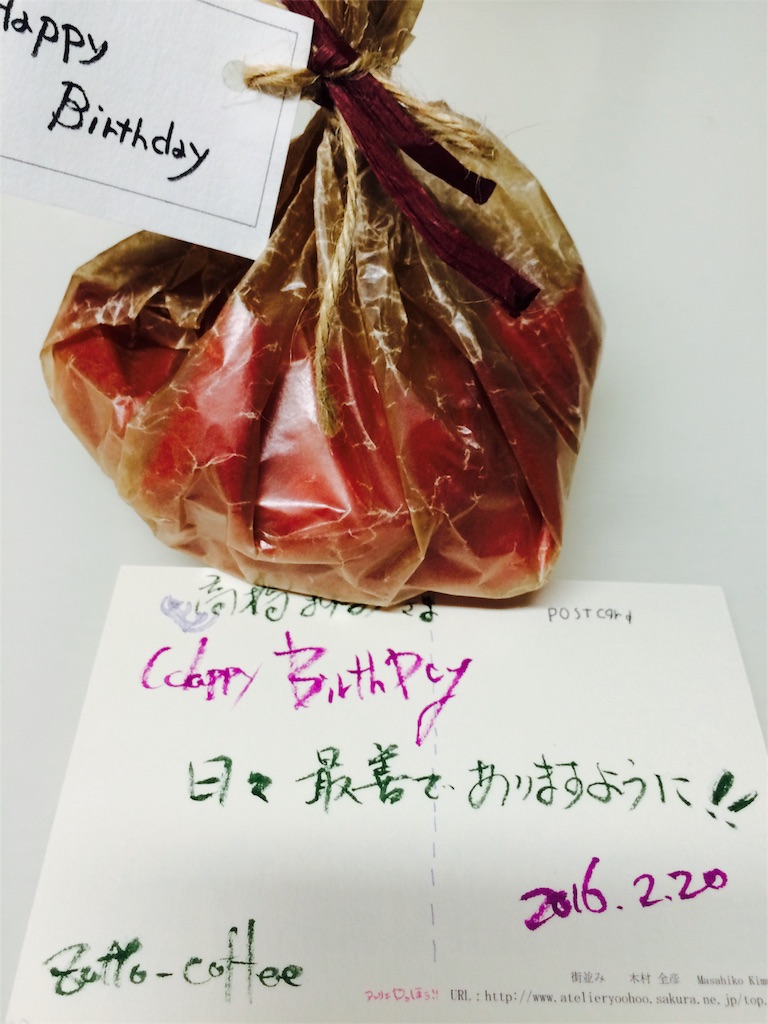 Happy
Birthday
高橋 さま
POSTCARD
Happy BirthDay
日々 最善で ありますように!!
2016.2.20
Zutto-coffee
街並み 木村 全彦 Masahiko Kim
URL:http://www.atelieryoohoo.sakura.ne.jp/top.